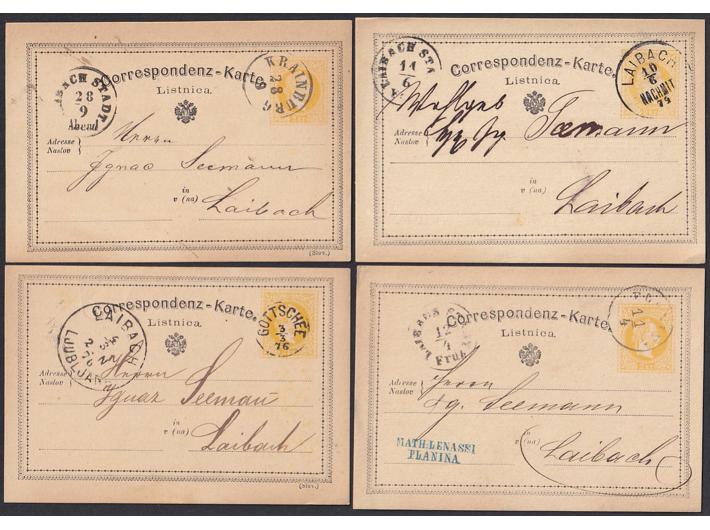 LAIBACH STADT
28
9
Abend
KRAINBURG
28
9
Correspondenz-Karte.
Listnica.
Adresse
Naslov
Herrn
Ignac Seemann
in
v (na)
Laibach
(Slov.)
LAIBACH STA
11
6
LAIBACH
10
6
NACHMIT
74
Correspondenz-Karte.
Listnica.
Adresse
Naslov
Wohlgeb
Seemann
in
v (na)
Laibach
LAIBACH
LJUBLJANA
GOTTSCHEE
3
3
76
Correspondenz-Karte.
Listnica.
Adresse
Naslov
Herrn
Ignaz Seeman
in
v (na)
Laibach
(Slov.)
LAIBACH
12
4
Früh
11
4
Correspondenz-Karte.
Listnica.
Adresse
Naslov
Herrn
Ig. Seemann
MATH. LENASSI
PLANINA
in
v (na)
Laibach